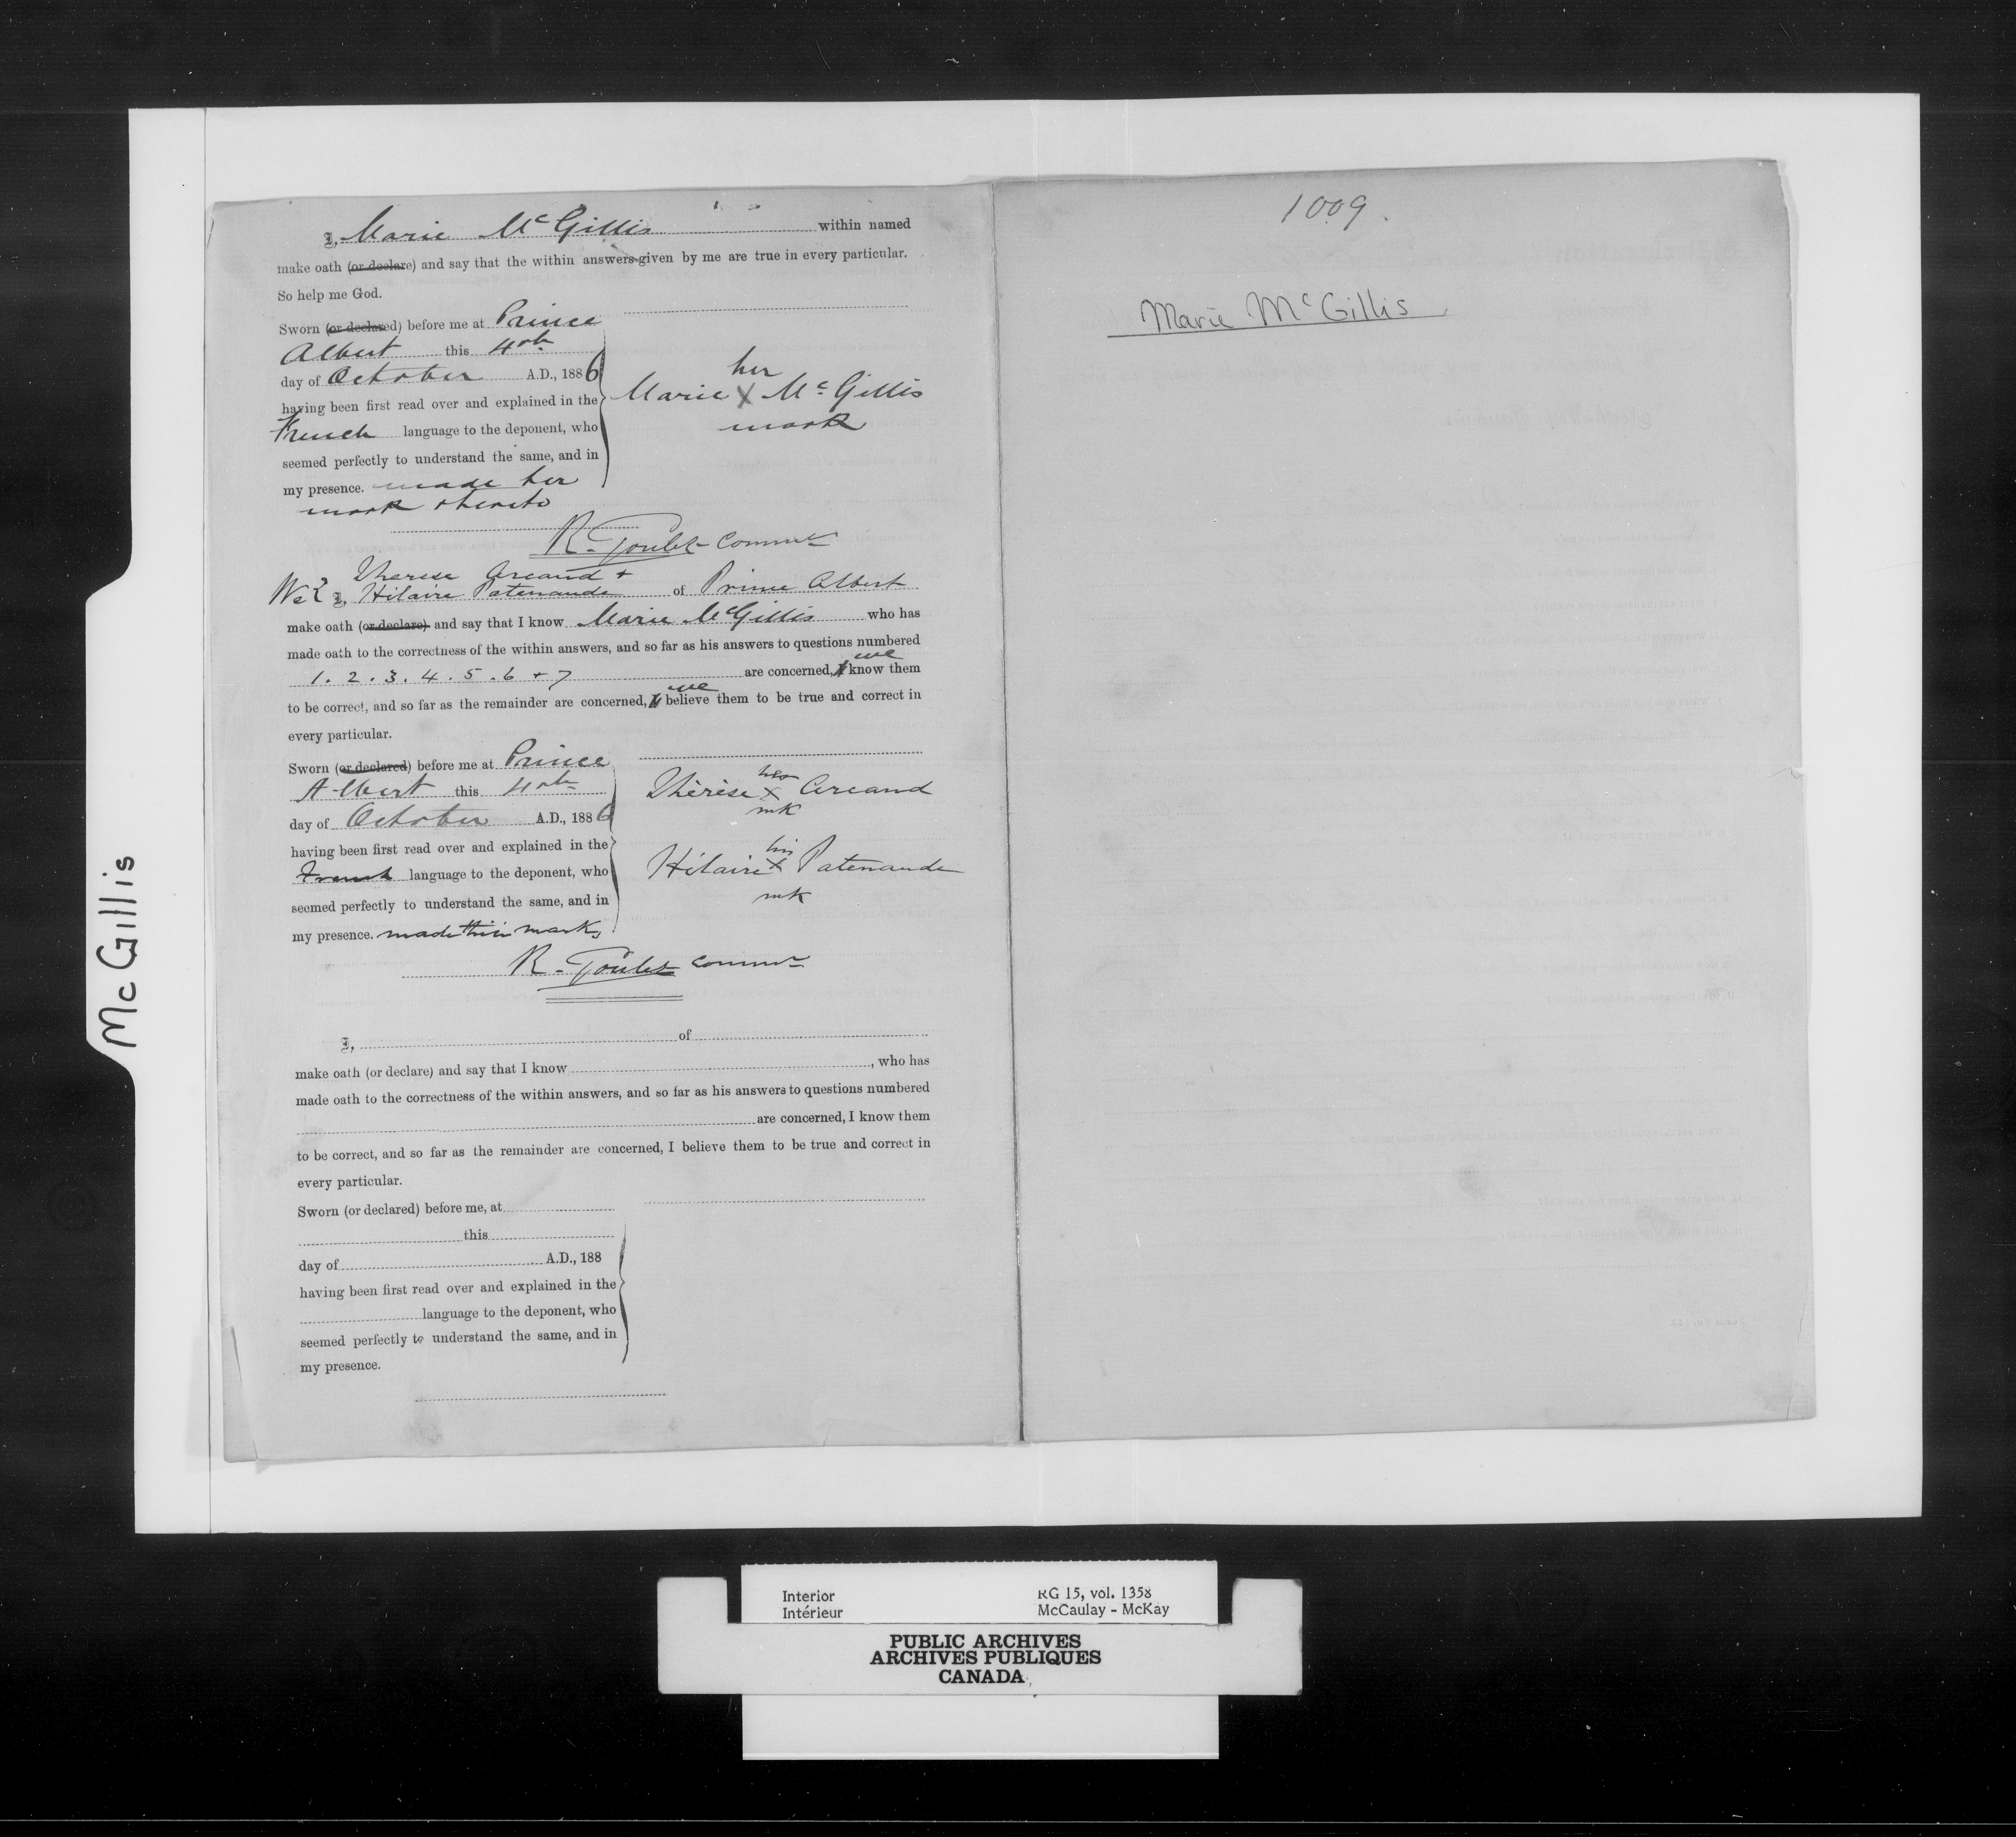 I, Marie McGillis within named
make oath (or declare) and say that the within answers given by me are true in every particular.
So help me God.
Sworn (or declared) before me at Prince
Albert this 4th
day of October A.D., 1886
having been first read over and explained in the
French language to the deponent, who
seemed perfectly to understand the same, and in
my presence. made her
mark thereto
her
Marie X McGillis
mark
R. Goulet Commr
Therese Arcand +
We 2 I, Hilaire Patenaude of Prince Albert
make oath (or declare) and say that I know Marie McGillis who has
made oath to the correctness of the within answers, and so far as his answers to questions numbered
we
1. 2. 3. 4. 5. 6 + 7 are concerned, I know them
we
to be correct, and so far as the remainder are concerned, I believe them to be true and correct in
every particular.
Sworn (or declared) before me at Prince
Albert this 4th
day of October A.D., 1886
having been first read over and explained in the
French language to the deponent, who
seemed perfectly to understand the same, and in
my presence. made their marks
her
Thérèse X Arcand
mk
his
Hilaire X Patenaude
mk
R. Goulet Commr
I, of
make oath (or declare) and say that I know , who has
made oath to the correctness of the within answers, and so far as his answers to questions numbered
are concerned, I know them
to be correct, and so far as the remainder are concerned, I believe them to be true and correct in
every particular.
Sworn (or declared) before me, at
this
day of A.D., 188
having been first read over and explained in the
language to the deponent, who
seemed perfectly to understand the same, and in
my presence.
1009.
Marie McGillis
McGillis
Interior
Intérieur
RG 15, vol. 1358
McCaulay - McKay
PUBLIC ARCHIVES
ARCHIVES PUBLIQUES
CANADA